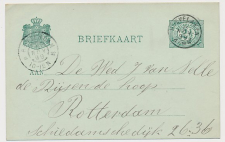 BRIEFKAART
AAN
De Wed J van Nelle
de Rijsende hoop
Rotterdam
Schiedamschedijk 26.36